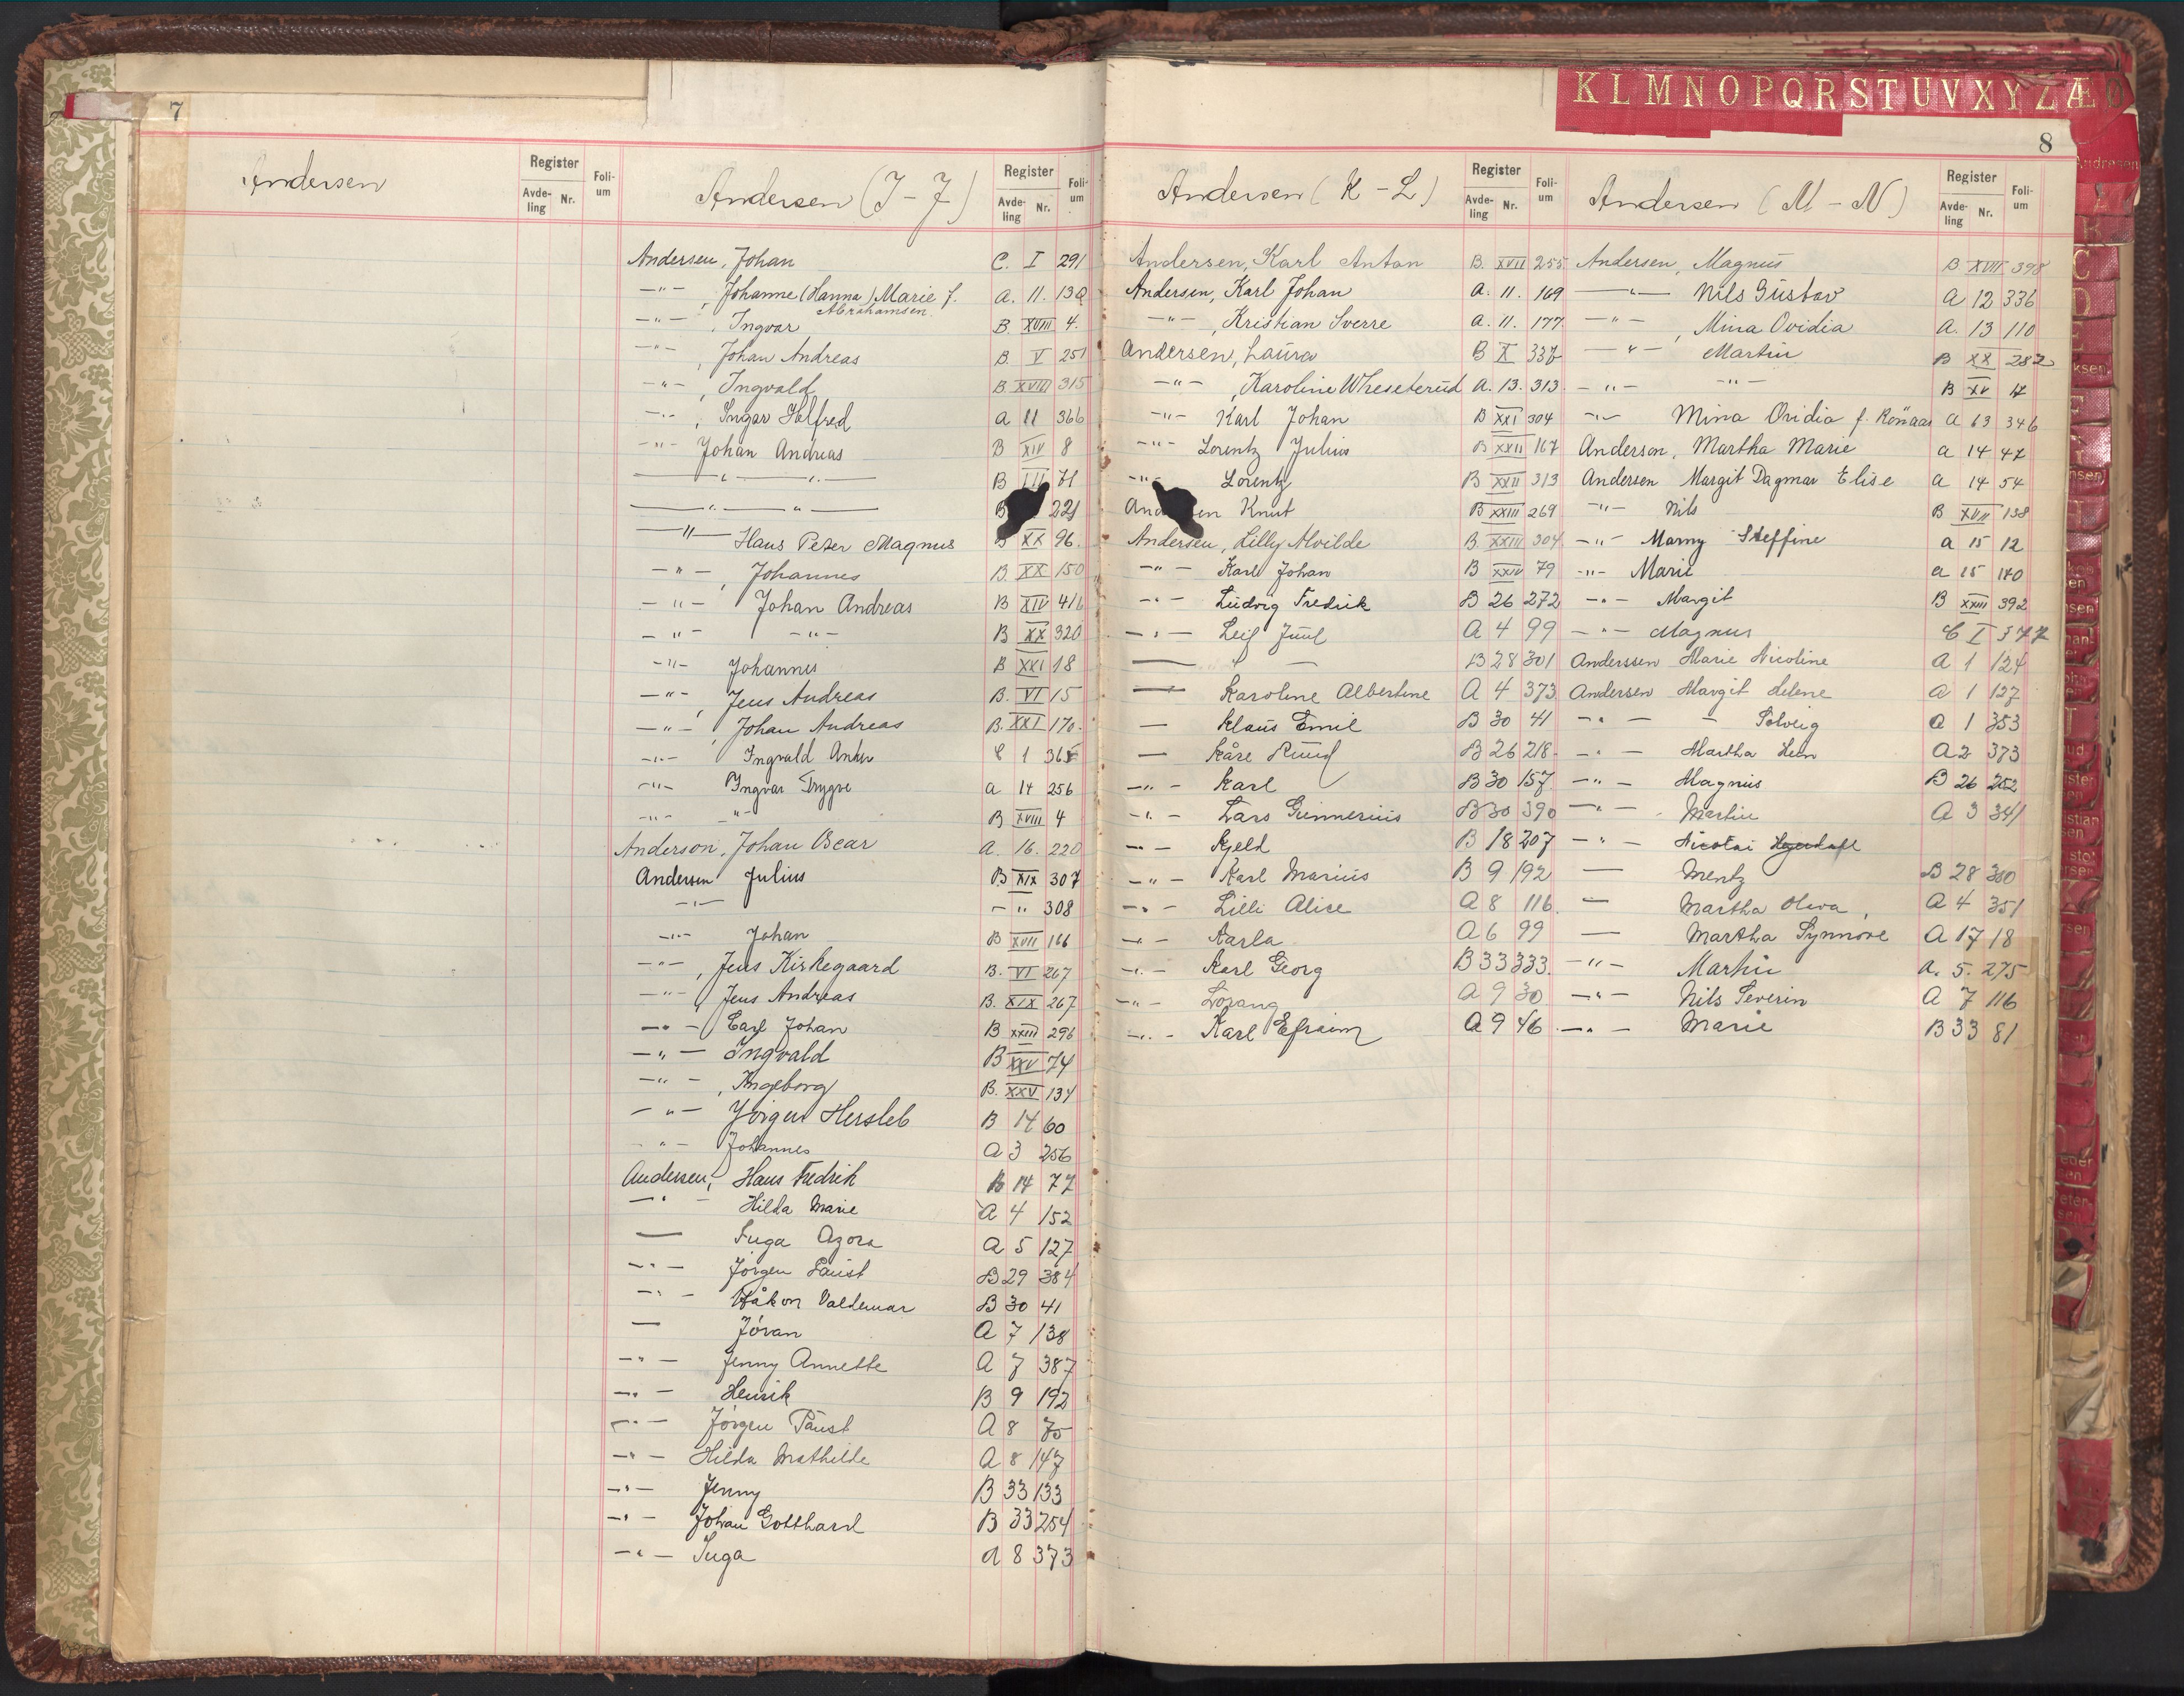 7
Andersen
Register
Avde-ling Nr. Foli-um
Andersen (I - J)
Register
Avde-ling Nr. Foli-um
Andersen, Johan C. I 291
-"- , Johanne (Hanna) Marie f. A. 11. 130
Abrahamsen
-"- , Ingvar B XVIII 4.
-"- , Johan Andreas B V 251
-"- , Ingvald B XVIII 315
-"- , Ingar Halfred A 11 366
-"- Johan Andreas B XIV 8
-"- -"- B III 71
-"- -"- B 221
-"- Hans Peter Magnus B XX 96.
-"- , Johannes B XX 150
-"- , Johan Andreas B XIV 416
-"- -"- B XX 320
-"- Johannes B XXI 18
-"- , Jens Andreas B. VI 15
-"- , Johan Andreas B. XXI 170.
-"- Ingvald Anker C 1 365
-"- Yngvar Trygve a 14 256
-"- -"- B XVIII 4
Anderson, Johan Oscar A. 16. 220
Andersen Julius B XIX 307
-"- - " 308
-"- Johan B XVII 166
-"- , Jens Kirkegaard B. VI 267
-"- , Jens Andreas B. XIX 267
-"- Carl Johan B XXIII 296
-"- Ingvald B XXV 74
-"- , Ingeborg B. XXV 134
-"- Jörgen Hersleb B 14 60
-"- Johannes A 3 256
Andersen, Hans Fredrik B 14 77
-"- Hilda Marie A 4 152
— Inga Azora A 5 127
-"- Jörgen Faust B 29 384
-"- Håkon Valdemar B 30 41
— Jóvan A 7 138
-"- Jenny Annette A 7 387
-"- Henrik B 9 192
-"- Jörgen Faust A 8 75
-"- Hilda Mathilde A 8 147
-"- Jenny B 33 133
-"- Johan Gotthard B 33 254
-"- Inga A 8 373
K L M N O P Q R S T U V X Y Z Æ Ø
8
Andersen (K - L)
Register
Avde-ling Nr. Foli-um
Andersen, Karl Anton B. XVII 255
Andersen, Karl Johan A. 11. 169
-"- , Kristian Sverre A. 11. 177
Andersen, Laura B X 337
-"- , Karoline Wheseterud A. 13. 313.
-"- Karl Johan B XXI 304
-"- Lorentz Julius B XXII 167
-"- Lorentz B XXII 313
Andersen Knut B XXIII 269
Andersen, Lilly Alvilde B. XXIII 304
-"- Karl Johan B XXIV 79
-"- Ludvig Fredrik B 26 272
-"- Leif Juul A 4 99
— " — B 28 301
— Karoline Albertine A 4 373
— Klaus Emil B 30 41
— Kåre Ruud B 26 218
-"- Karl B 30 157
-"- Lars Gunnerius B 30 390
-"- Kjeld B 18 207
-"- Karl Marius B 9 192
-"- Lilli Alice A 8 116
-"- Karla A 6 99
-"- Karl Georg B 33 333
-"- Lorang A 9 30
-"- Karl Efraim A 9 46
Andersen (M - N)
Register
Avde-ling Nr. Foli-um
Andersen, Magnus B XVII 398
-"- Nils Gustav A 12 336
-"- , Mina Ovidia A. 13 110
-"- Martin B XX 282
-"- -"- B XV 17
-"- Mina Ovidia f. Rönaas A 13 346
Anderson, Martha Marie a 14 47
Andersen Margit Dagmar Elise a 14 54
-"- Nils B XVII 138
-"- Marny Steffine a 15 12
-"- Marie a 15 140
-"- Margit B XXIII 392
-"- Magnus C I 377
Anderssen Marie Nicoline A 1 124
Andersen Margit Helene A 1 127
-"- - Solveig A 1 353
-"- Martha A 2 373
-"- Magnus B 26 252
-"- Martin A 3 341
-"- Nicolai
— Mentz B 28 300
— Martha Oleva, A 4 351
— Martha Synnøve A 17 18
-"- Martin A. 5. 275
-"- Nils Severin A 7 116
-"- Marie B 33 81